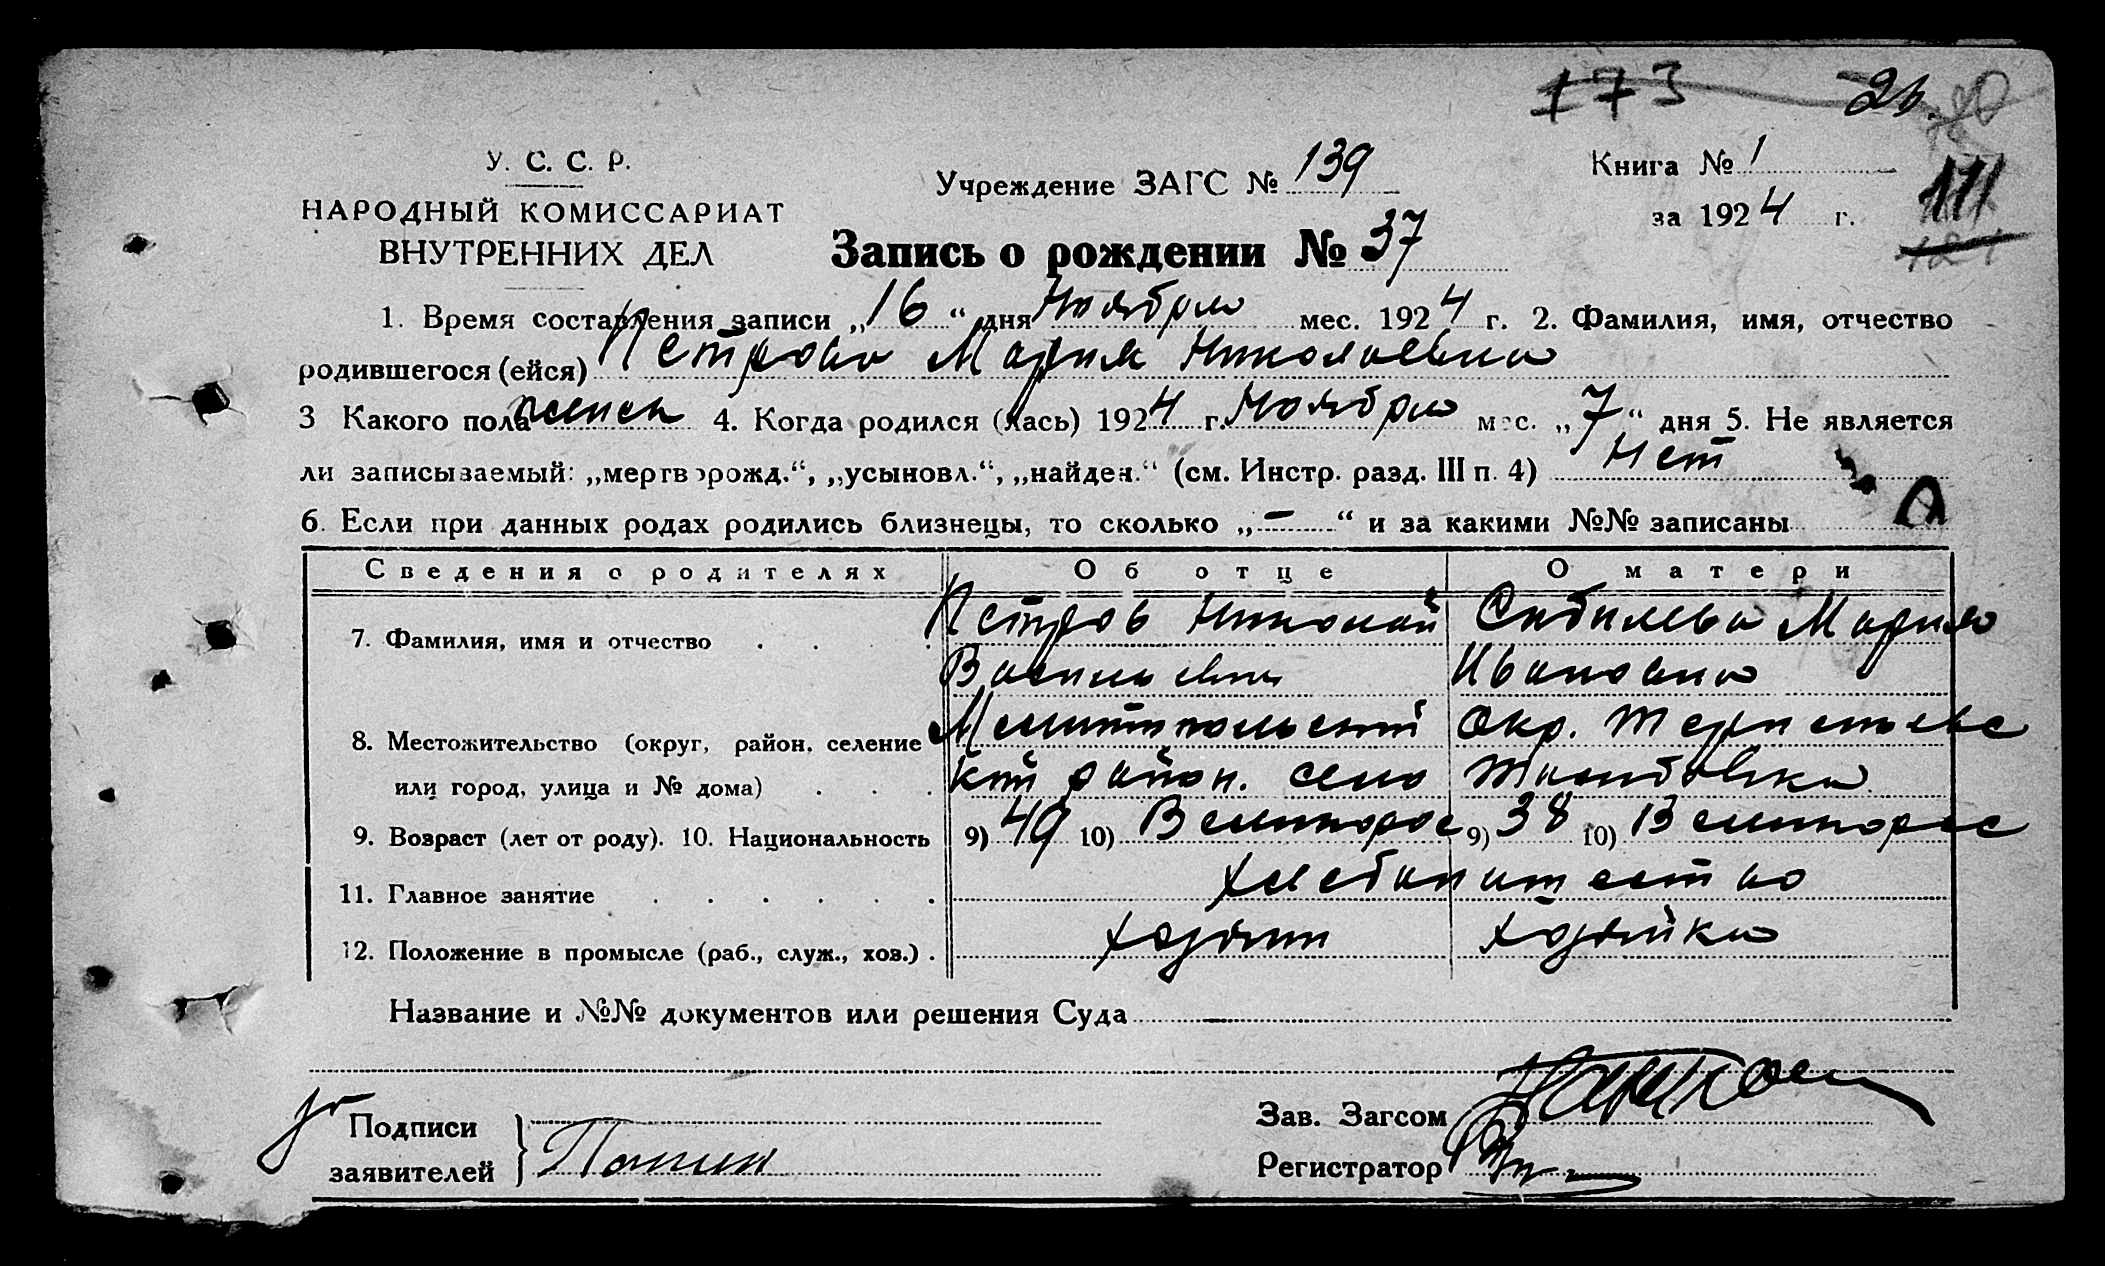 173 26
У. С. С. Р.
НАРОДНЫЙ КОМИССАРИАТ
ВНУТРЕННИХ ДЕЛ
Учреждение ЗАГС № 139
Книга № 1
за 1924 г.
111
Запись о рождении № 37
1. Время составления записи „16“ дня Ноября мес. 1924 г. 2. Фамилия, имя, отчество
родившегося (ейся) Петрова Мария Николаевна
3 Какого пола женск 4. Когда родился (лась) 1924 г. Ноября мес. „7“ дня 5. Не является
ли записываемый: „мертворожд.“, „усыновл.“, „найден.“ (см. Инстр. разд. III п. 4) Нет
6. Если при данных родах родились близнецы, то сколько „-“ и за какими №№ записаны
Сведения о родителях Об отце О матери
7. Фамилия, имя и отчество Петров Николай Мария
Васильевич Ивановна
8. Местожительство (округ, район, селение Мелитопольский окр. Терпеньевс
или город, улица и № дома) кий район. село
9. Возраст (лет от роду). 10. Национальность 9) 49 10) Великорос 9) 38 10) Великорос
11. Главное занятие хлебопашество
12. Положение в промысле (раб., служ., хоз.) хозяин хозяйка
Название и №№ документов или решения Суда
Подписи
заявителей
Зав. Загсом
Регистратор